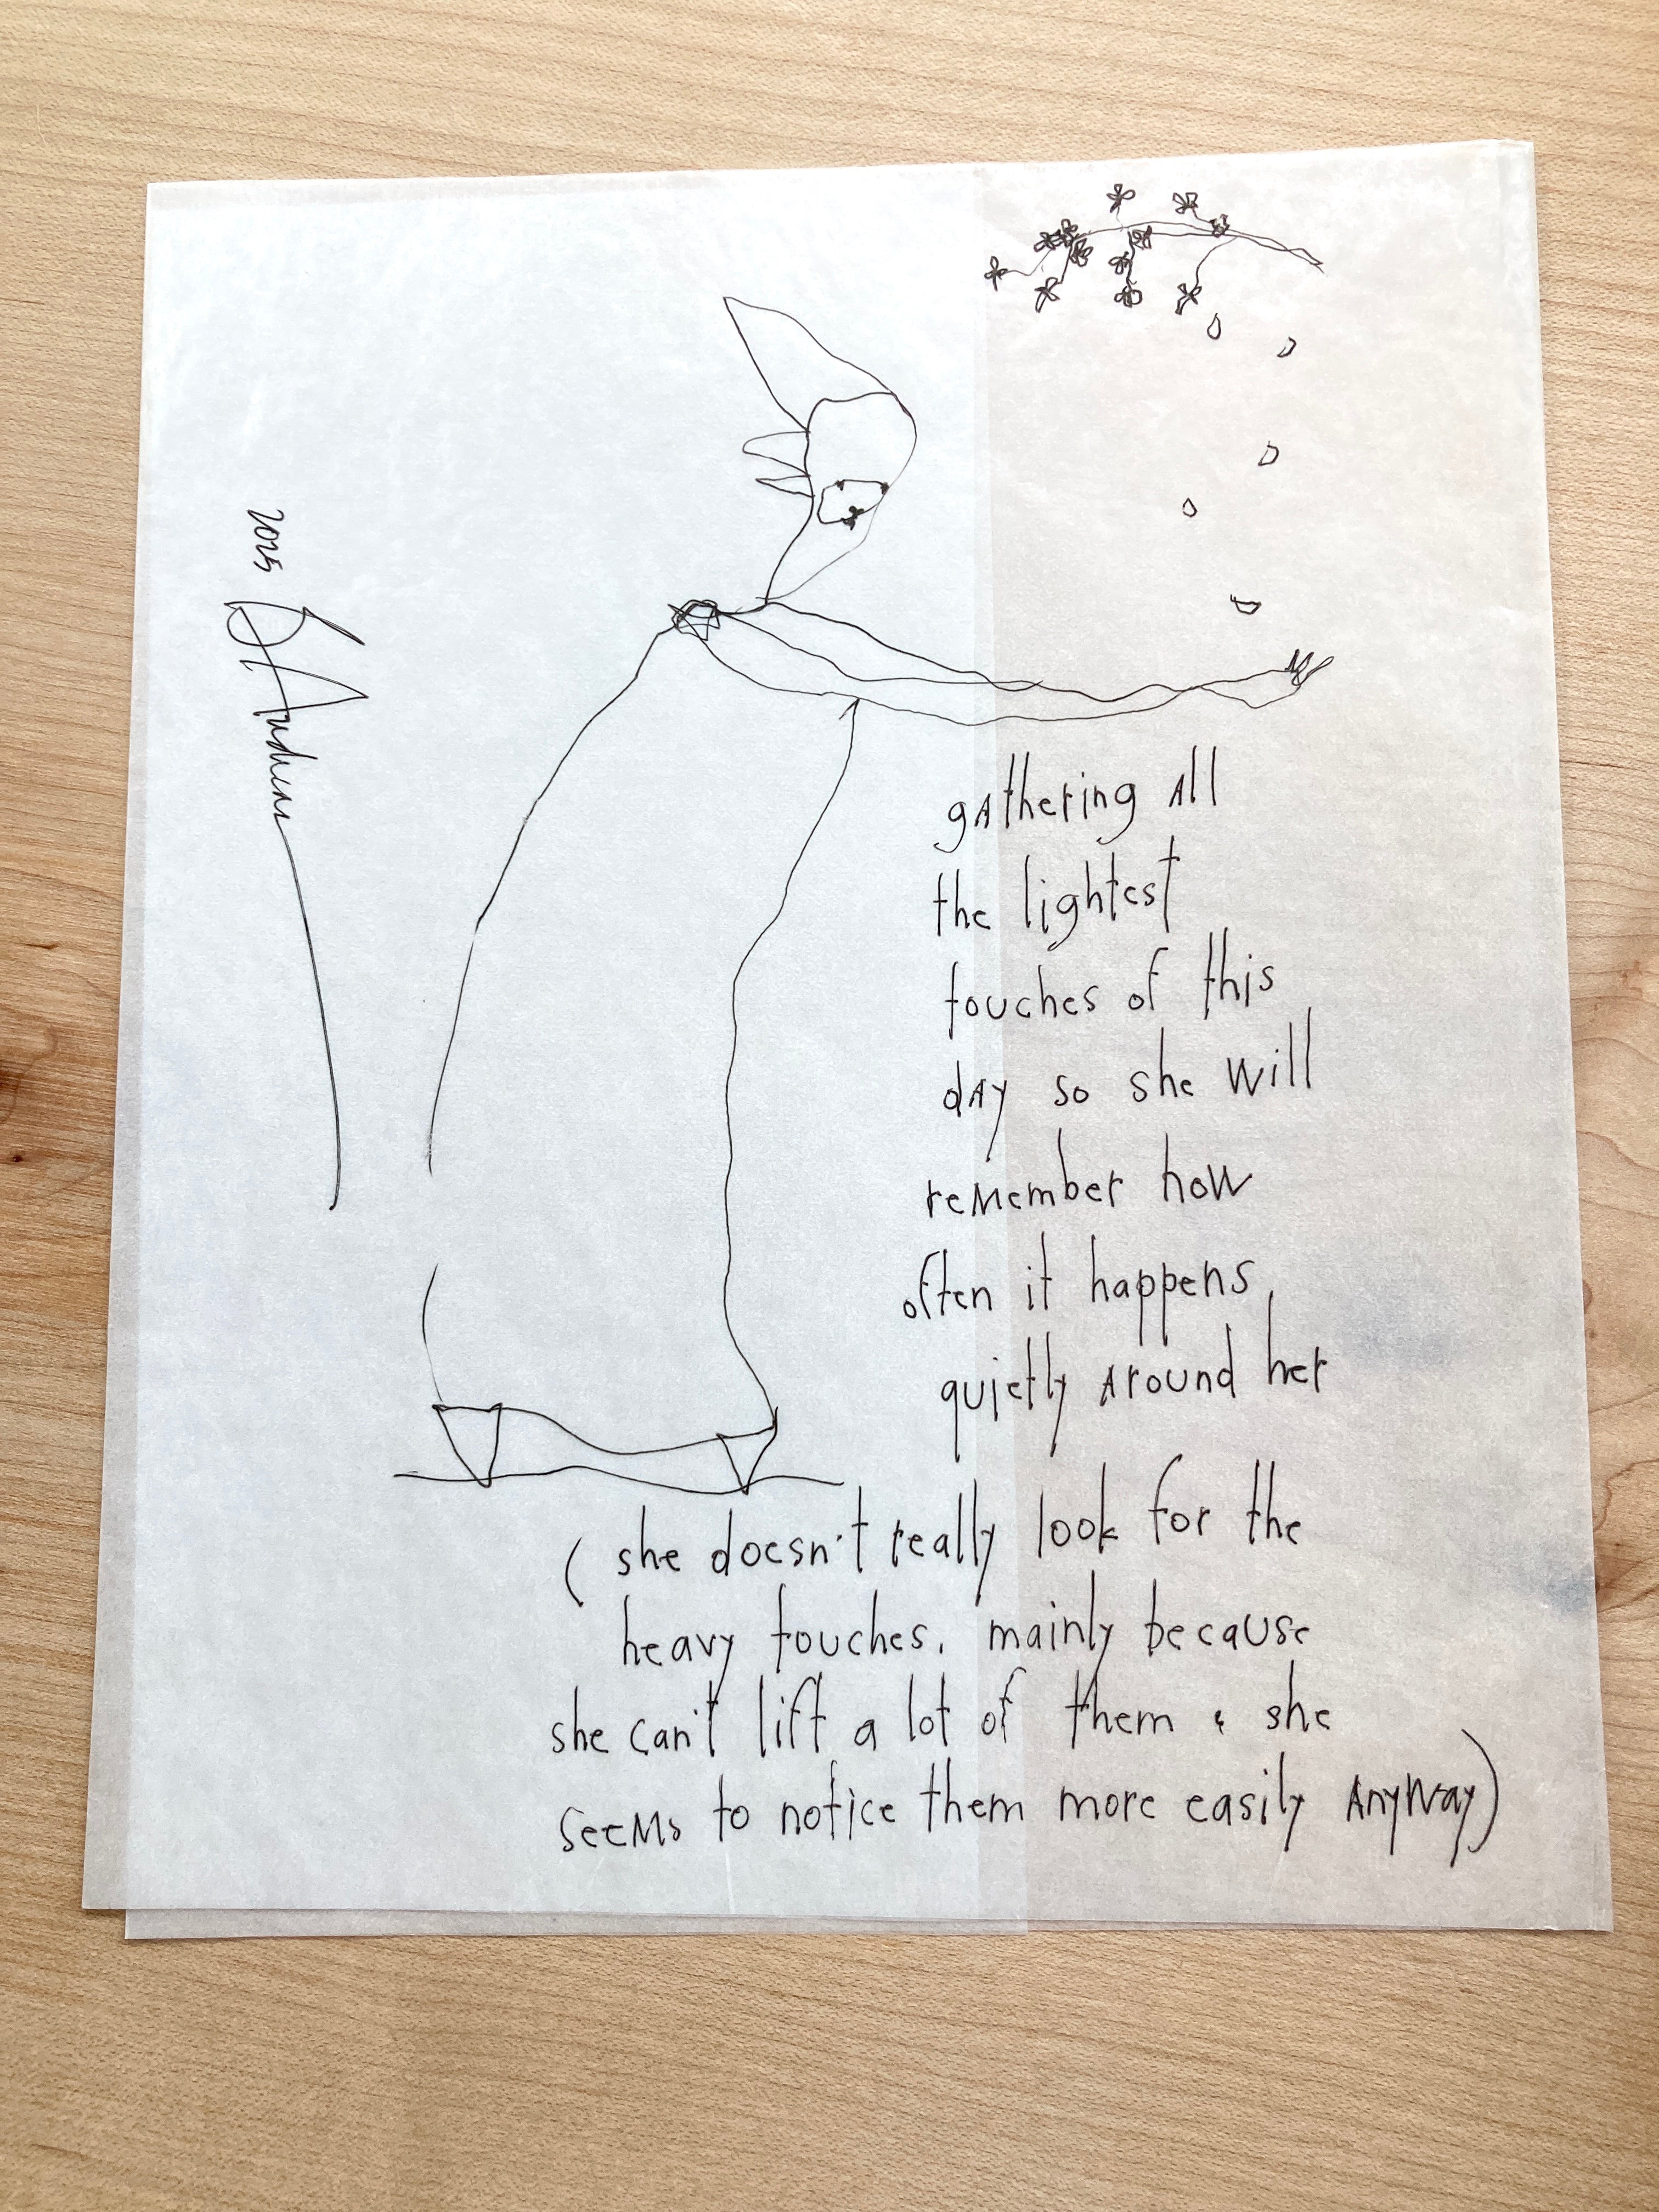 gathering all
the lightest
touches of this
day so she will
remember how
often it happens,
quietly around her
(she doesn't really look for the
heavy touches, mainly because
she can't lift a lot of them & she
seems to notice them more easily anyway)
2025